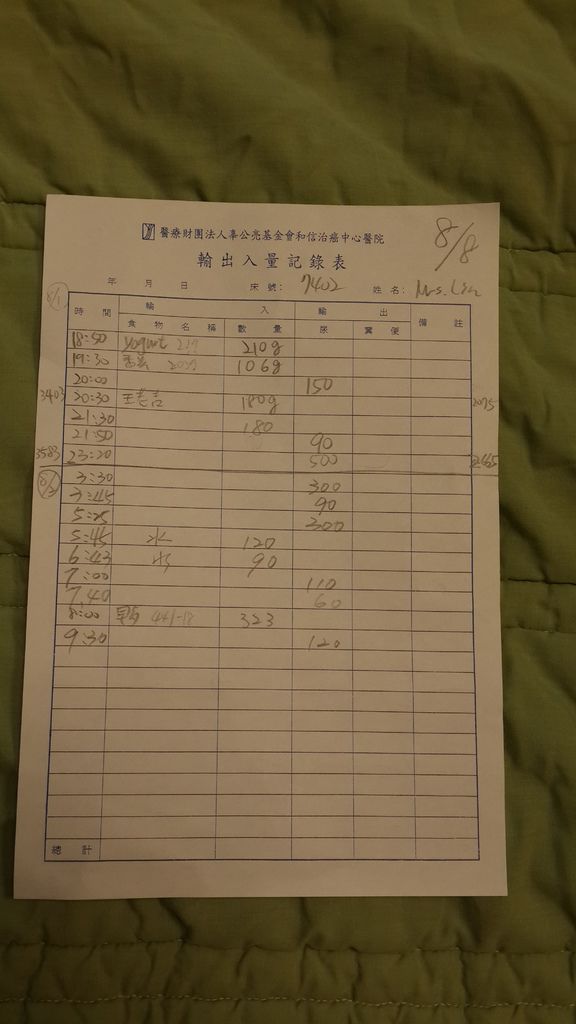 醫療財團法人辜公亮基金會和信治癌中心醫院
8/8
輸出入量記錄表
年 月 日 床號: 7402 姓名: Mrs. Lin
8/1
時間 輸入 輸出 備註
食物名稱 數量 尿 糞便
18:50 Yogurt 210g
19:30 106g
20:00 150
3403 20:30 180g 2075
21:30 180
21:50 90
3583 23:20 500
3:30 300
3:45 90
300
5:45 水 120
6:43 水 90
7:00 110
7.40 60
8:00 441-18 323
9:30 120
總計